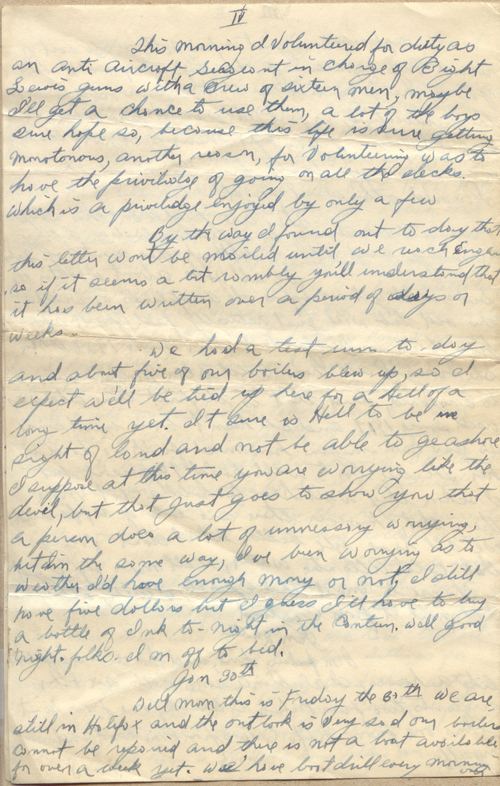 IV
This morning I Volunteered for duty as
an anti aircraft Sergeant in charge of Eight
Lewis guns with a Crew of sixteen men, maybe
I'll get a chance to use them, a lot of the boys
sure hope so, because this life is sure getting
monotonous, another reason, for Volunteering was to
have the priviledge of going on all the decks.
which is a priviledge enjoyed by only a few
By the way I found out to day that
this letter wont be mailed until we reach
so if it seems a bit rambly you'll understand that
it has been written over a period of days or
weeks.
We had a test run to-day
and about five of our boilers blew up, so I
expect we'll be tied up here for a Hell of a
long time yet. It sure is Hell to be in
sight of land and not be able to go ashore
I suppose at this time you are worrying like the
devil, but that just goes to show you that
a person does a lot of unnessary worrying,
but in the same way, I've been worrying as to
wether I'd have enough money or not, I still
have five dollars but I guess I'll have to buy
a bottle of Ink to-night in the Canteen. well good
night. folks. I'm off to bed.
Jan 30th
Well mom this is Friday the 30th we are
still in Halifax and the outlook is very sad our boilers
cannot be repaired and there is not a boat available
for over a week yet. We have boat drill every morning